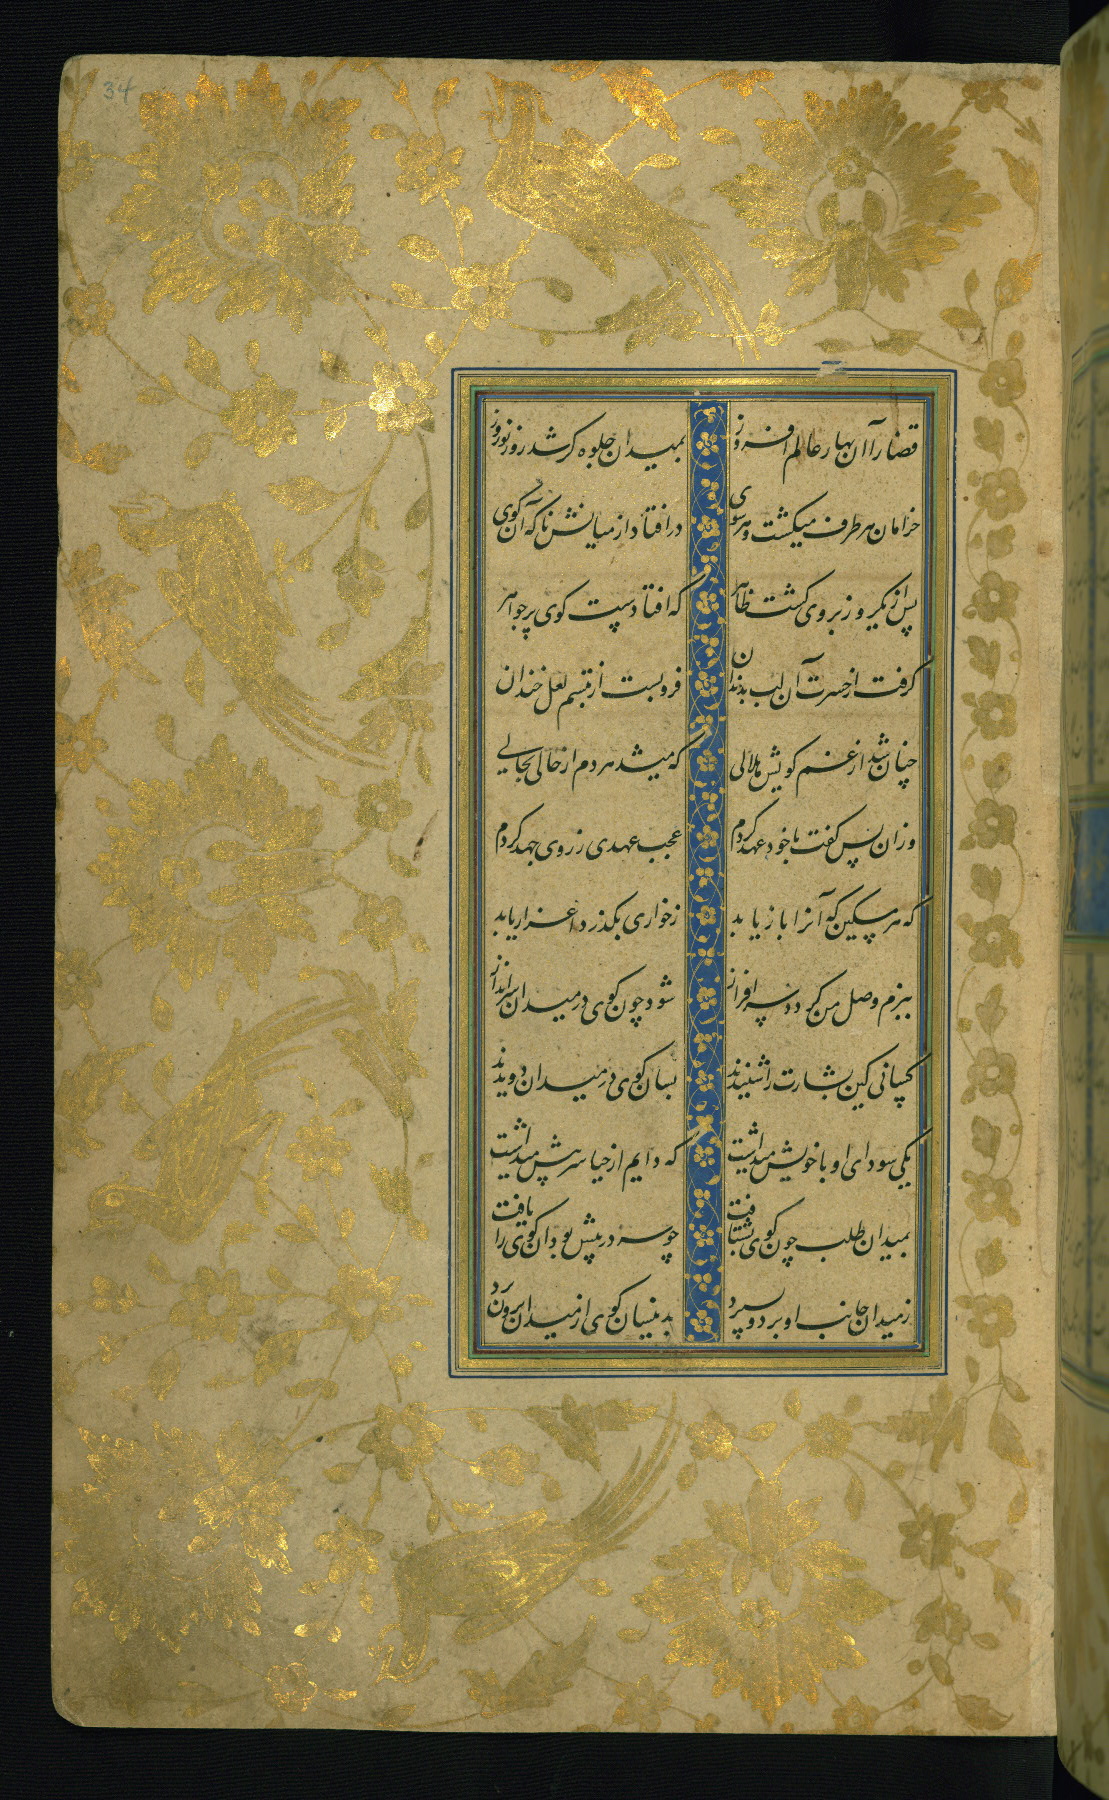 34
قضا را آن بهار عالم افروز بمیدان جلوه گر شد روز نوروز
خرامان هر طرف میکشت و هر سوی در افتاد از میانش ناکه آن کوی
پس از کمیر و زبر وی کشت ظاهر که افتادست کوی پر جواهر
کرفت از حسرت آن لب بدندان فرو بست از تبسم لعل خندان
چنان شد از غم کویش هلالی که میشد هر دم از حالی بحالی
وزان پس کفت با خود عهد کردم عجب عهدی ز روی جهد کردم
که هر مسکین که آنرا باز یابد ز خواری بکذرد اعزاز یابد
ببزم وصل من کردد سرافراز شود چون کوی در میدان سرانداز
کسانی کین بشارت را شنیدند بسان کوی در میدان دویدند
یکی سودای او با خویش میداشت که دایم از حیا سر پیش میداشت
بمیدان طلب چون کوی بشتافت چو سر در پیش بود آن کوی را یافت
ز میدان جانب او برد و بسپرد بدینسان کوی از میدان برون برد